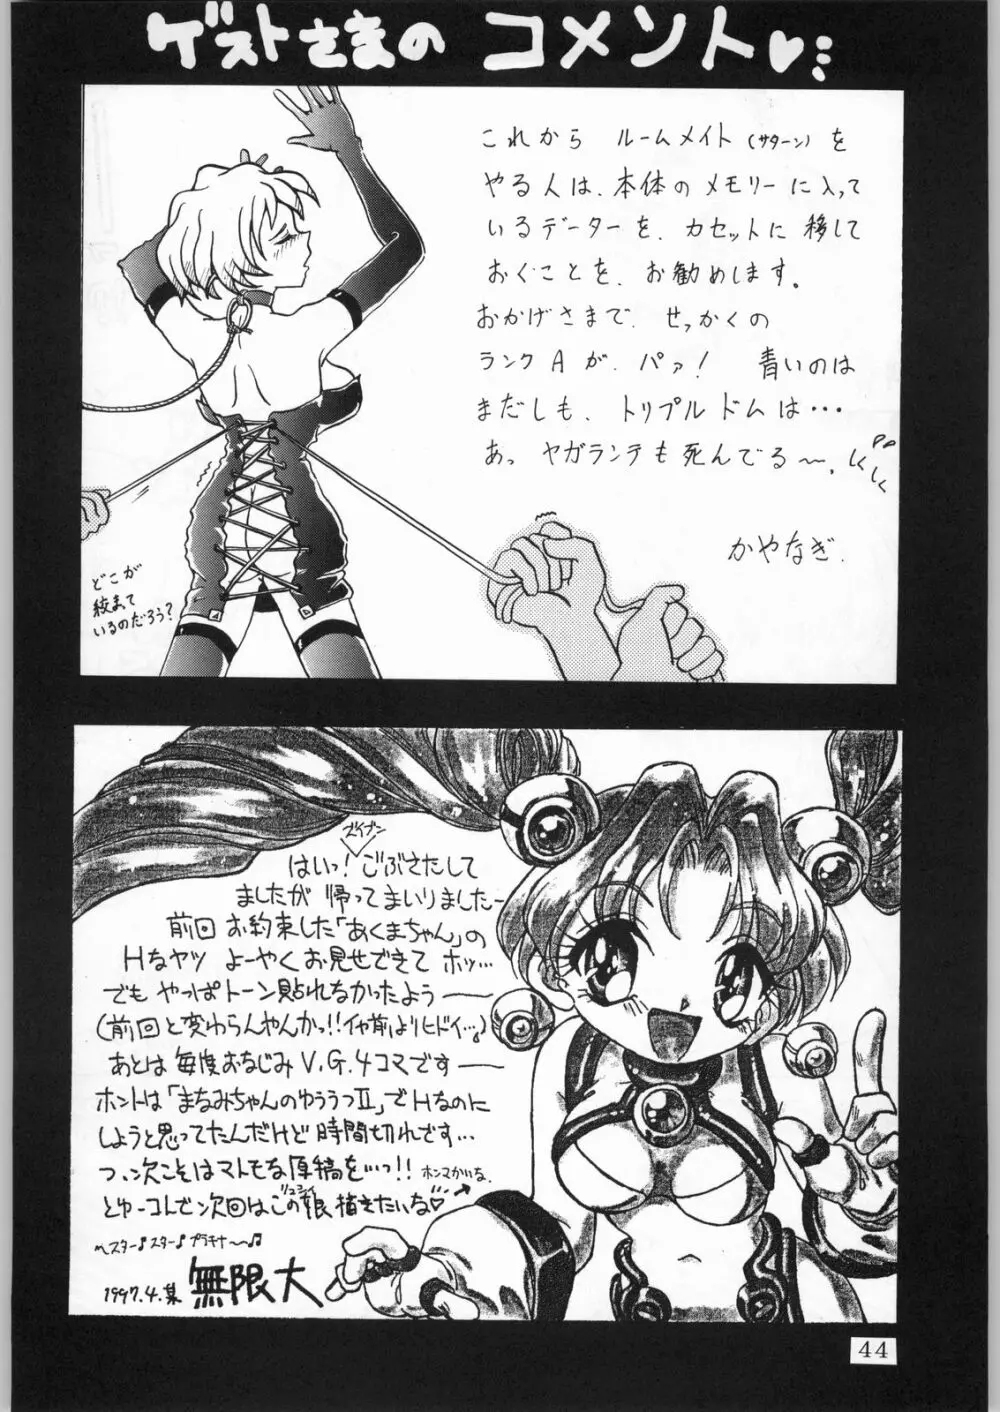 ゲストさまの コメント♡
これから ルームメイト(サターン)を
やる人は、本体のメモリーに入って
いるデーターを、カセットに移して
おくことを、お勧めします。
おかげさまで、せっかくの
ランクAが、パァ! 青いのは
まだしも、トリプルドムは・・・
あっ ヤガランテも死んでる〜。
しくしく
かやなぎ.
どこが
絞まって
いるのだろう?
ズイブン
はいっ!ごぶさたして
ましたが 帰ってまいりましたー
前回 お約束した「あくまちゃん」の
Hなヤツ よーやくお見せできて ホッ…
でも やっぱトーン貼れなかったよう——
(前回と変わらんやんかっ!!イヤ前よりヒドイ…)
あとは 毎度おなじみ V.G.4コマです——
ホントは「まなみちゃんのゆううつII」でHなのに
しようと思ってたんだけど 時間切れです…
つ、次こそはマトモな原稿を…っ!! ホンマかいな.
とゆーコトで次回はこの娘描きたいな♡
〜スター♪スター♪プラチナ〜♫
1997.4.某 無限大
44